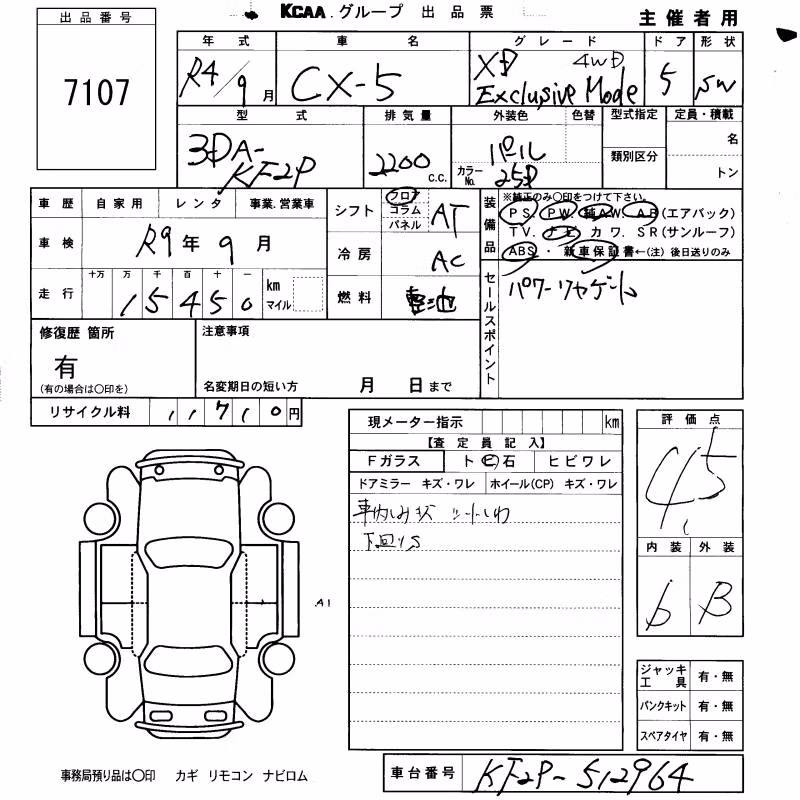 KCAA.グループ 出品票
主催者用
出品番号
7107
年式 車名 グレード ドア 形状
R4/9月 CX-5 XD 4WD Exclusive Mode 5 SW
型式 排気量 外装色 色替 型式指定 定員・積載
3DA-KF2P 2200c.c. パール カラーNo. 25D 類別区分 名 トン
車歴 自家用 レンタ 事業.営業車
車検 R9年9月
走行 十万 万 千 百 十 一
15450 km マイル
シフト フロア コラム パネル AT
冷房 AC
燃料 軽油
装備品
※純正のみ○印をつけて下さい。
PS. PW. 純AW. AB(エアバック)
TV. ナビ カワ. SR(サンルーフ)
ABS・新車保証書←(注)後日送りのみ
セールスポイント
パワーリヤゲート
修復歴 箇所
有
(有の場合は○印を)
注意事項
名変期日の短い方 月 日まで
リサイクル料 11710円
現メーター指示 km
【査定員記入】
Fガラス トビ石 ヒビワレ
ドアミラー キズ・ワレ ホイール(CP) キズ・ワレ
車内しみキズ シートしわ
下回りS
評価点
4.5
内装 外装
b B
A1
ジャッキ工具 有・無
パンクキット 有・無
スペアタイヤ 有・無
事務局預り品は○印 カギ リモコン ナビロム
車台番号 KF2P-512964